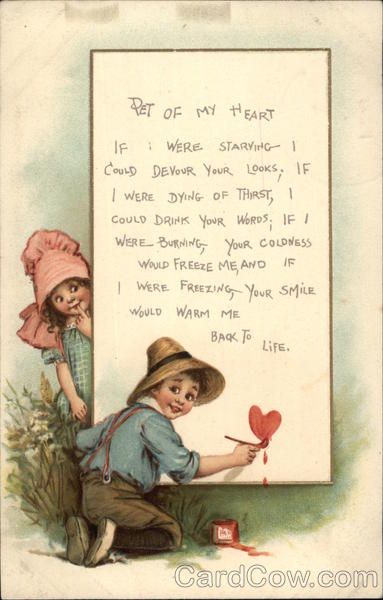 PET OF MY HEART
IF I WERE STARVING I
COULD DEVOUR YOUR LOOKS; IF
I WERE DYING OF THIRST, I
COULD DRINK YOUR WORDS; IF I
WERE BURNING, YOUR COLDNESS
WOULD FREEZE ME, AND IF
I WERE FREEZING, YOUR SMILE
WOULD WARM ME
BACK TO LIFE.
CardCow.com